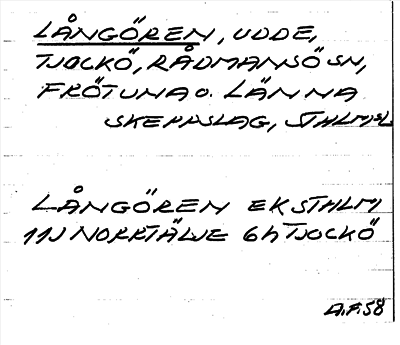 LÅNGÖREN, UDDE,
TJOCKÖ, RÅDMANSÖ SN,
FRÖTUNA O. LÄNNA
SKEPPSLAG, STHLMS L
LÅNGÖREN EK STHLM
11J NORRTÄLJE 6h TJOCKÖ
A.F. 58